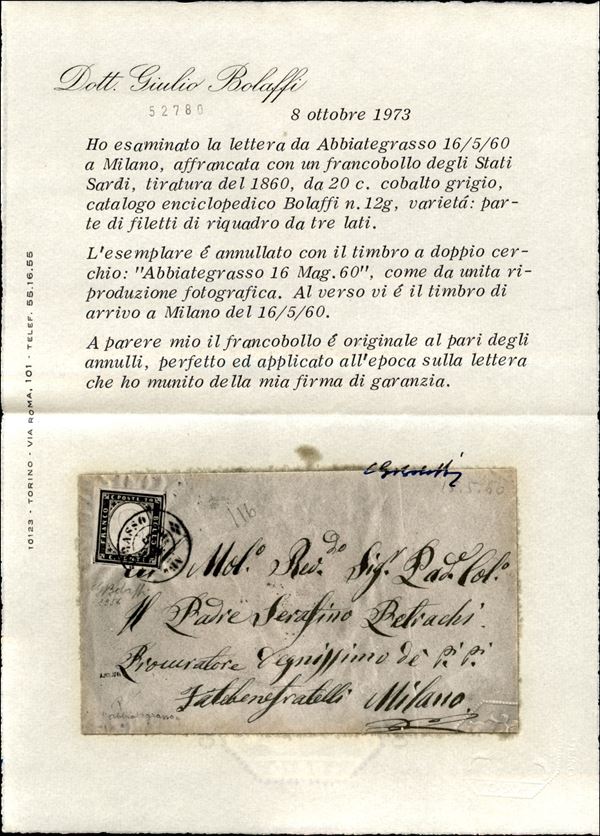 Dott. Giulio Bolaffi
52780
8 ottobre 1973
Ho esaminato la lettera da Abbiategrasso 16/5/60
a Milano, affrancata con un francobollo degli Stati
Sardi, tiratura del 1860, da 20 c. cobalto grigio,
catalogo enciclopedico Bolaffi n. 12g, varietá: par-
te di filetti di riquadro da tre lati.
L'esemplare é annullato con il timbro a doppio cer-
chio: "Abbiategrasso 16 Mag. 60", come da unita ri-
produzione fotografica. Al verso vi é il timbro di
arrivo a Milano del 16/5/60.
A parere mio il francobollo é originale al pari degli
annulli, perfetto ed applicato all'epoca sulla lettera
che ho munito della mia firma di garanzia.
10123 - TORINO - VIA ROMA, 101 - TELEF. 55.16.55
116
FRANCO
C. POSTE 20
BOLLO
Mol.º Rev.do Sig.r Pad.e Col.º
Il Padre Serafino Belrachi
Procuratore Degnissimo de P. P.
Fatebenefratelli Milano
Abbiategrasso